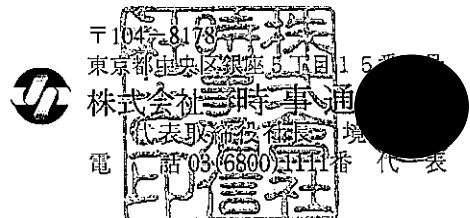 〒104-8178
東京都中央区銀座5丁目15番 号
株式会社 時事通
代表取締役社長 境
電 話 03(6800)1111番 代 表